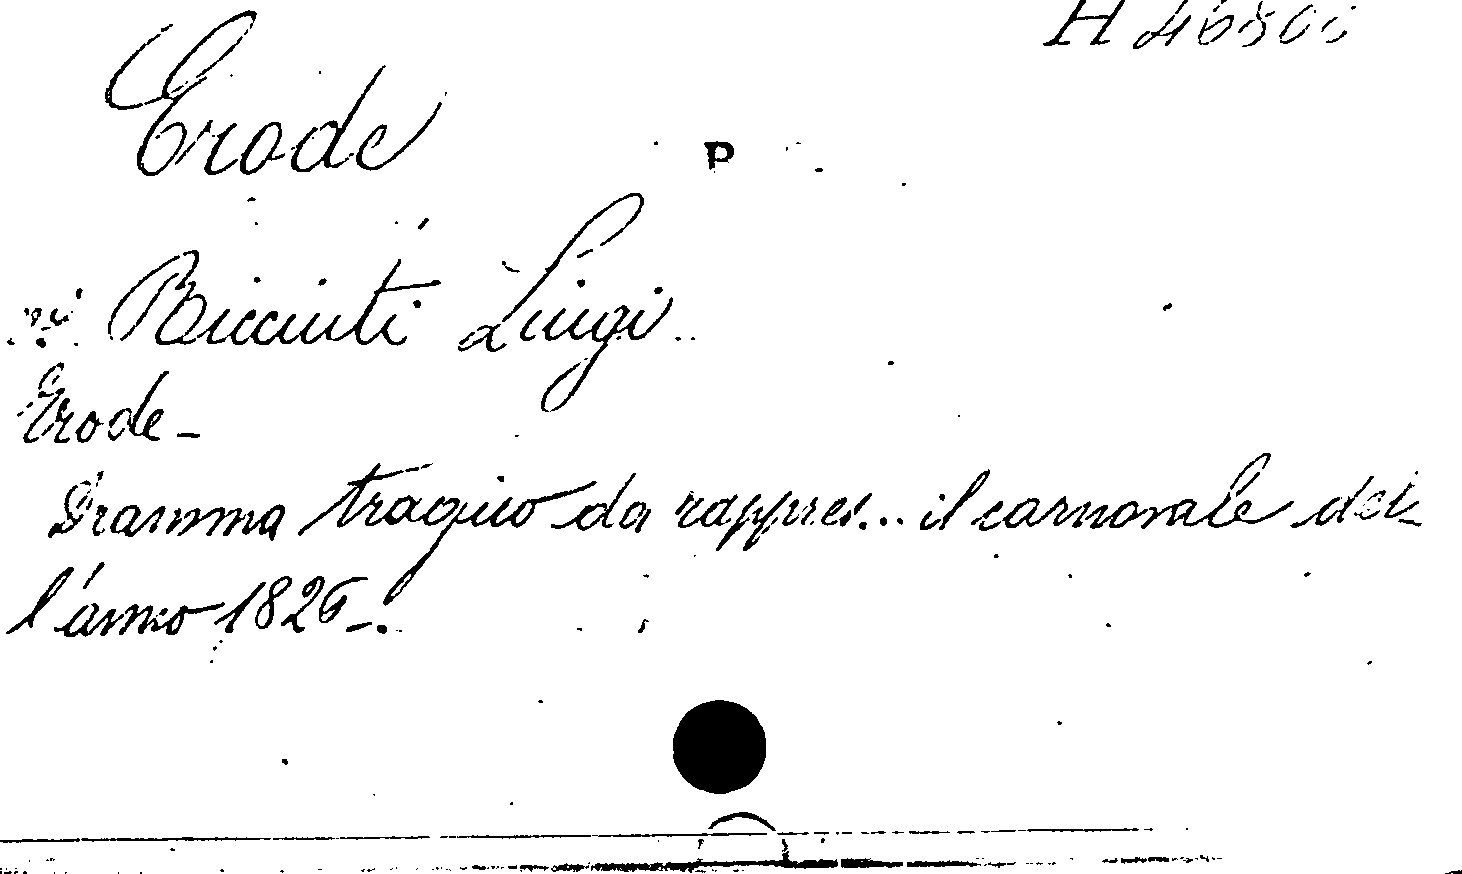 Erode
P
vi Ricciuti Luigi
Erode -
Dramma tragico da rappres... il carnovale del-
l'anno 1826 -.